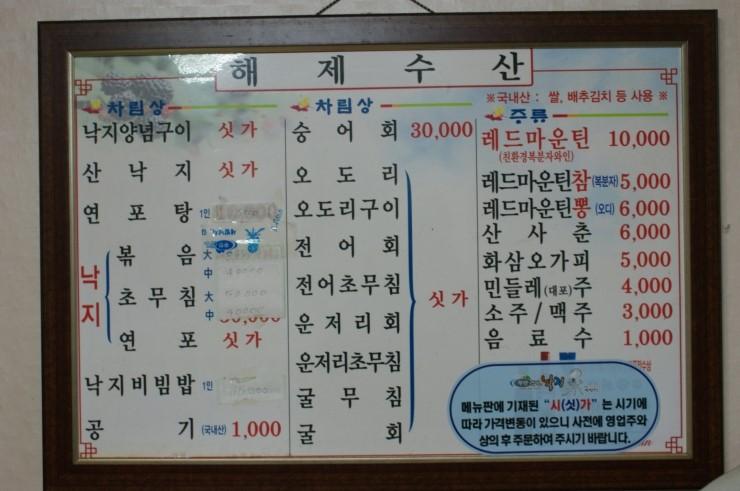 해 제 수 산
※국내산 : 쌀, 배추김치 등 사용 ※
차림상
낙지양념구이 싯가
산 낙 지 싯가
연 포 탕 1인
낙지
볶 음 大
中
초 무 침 大
中
연 포 싯가
낙지비빔밥 1인
공 기 (국내산) 1,000
차림상
숭 어 회 30,000
오 도 리
오도리구이
전 어 회
전어초무침
운 저 리 회
운저리초무침
굴 무 침
굴 회
싯가
주류
레드마운틴 10,000
(친환경복분자와인)
레드마운틴참(복분자) 5,000
레드마운틴뽕(오디) 6,000
산 사 춘 6,000
화삼오가피 5,000
민들레(대포)주 4,000
소주/맥주 3,000
음 료 수 1,000
낙지
메뉴판에 기재된 "시(싯)가" 는 시기에
따라 가격변동이 있으니 사전에 영업주와
상의 후 주문하여 주시기 바랍니다.